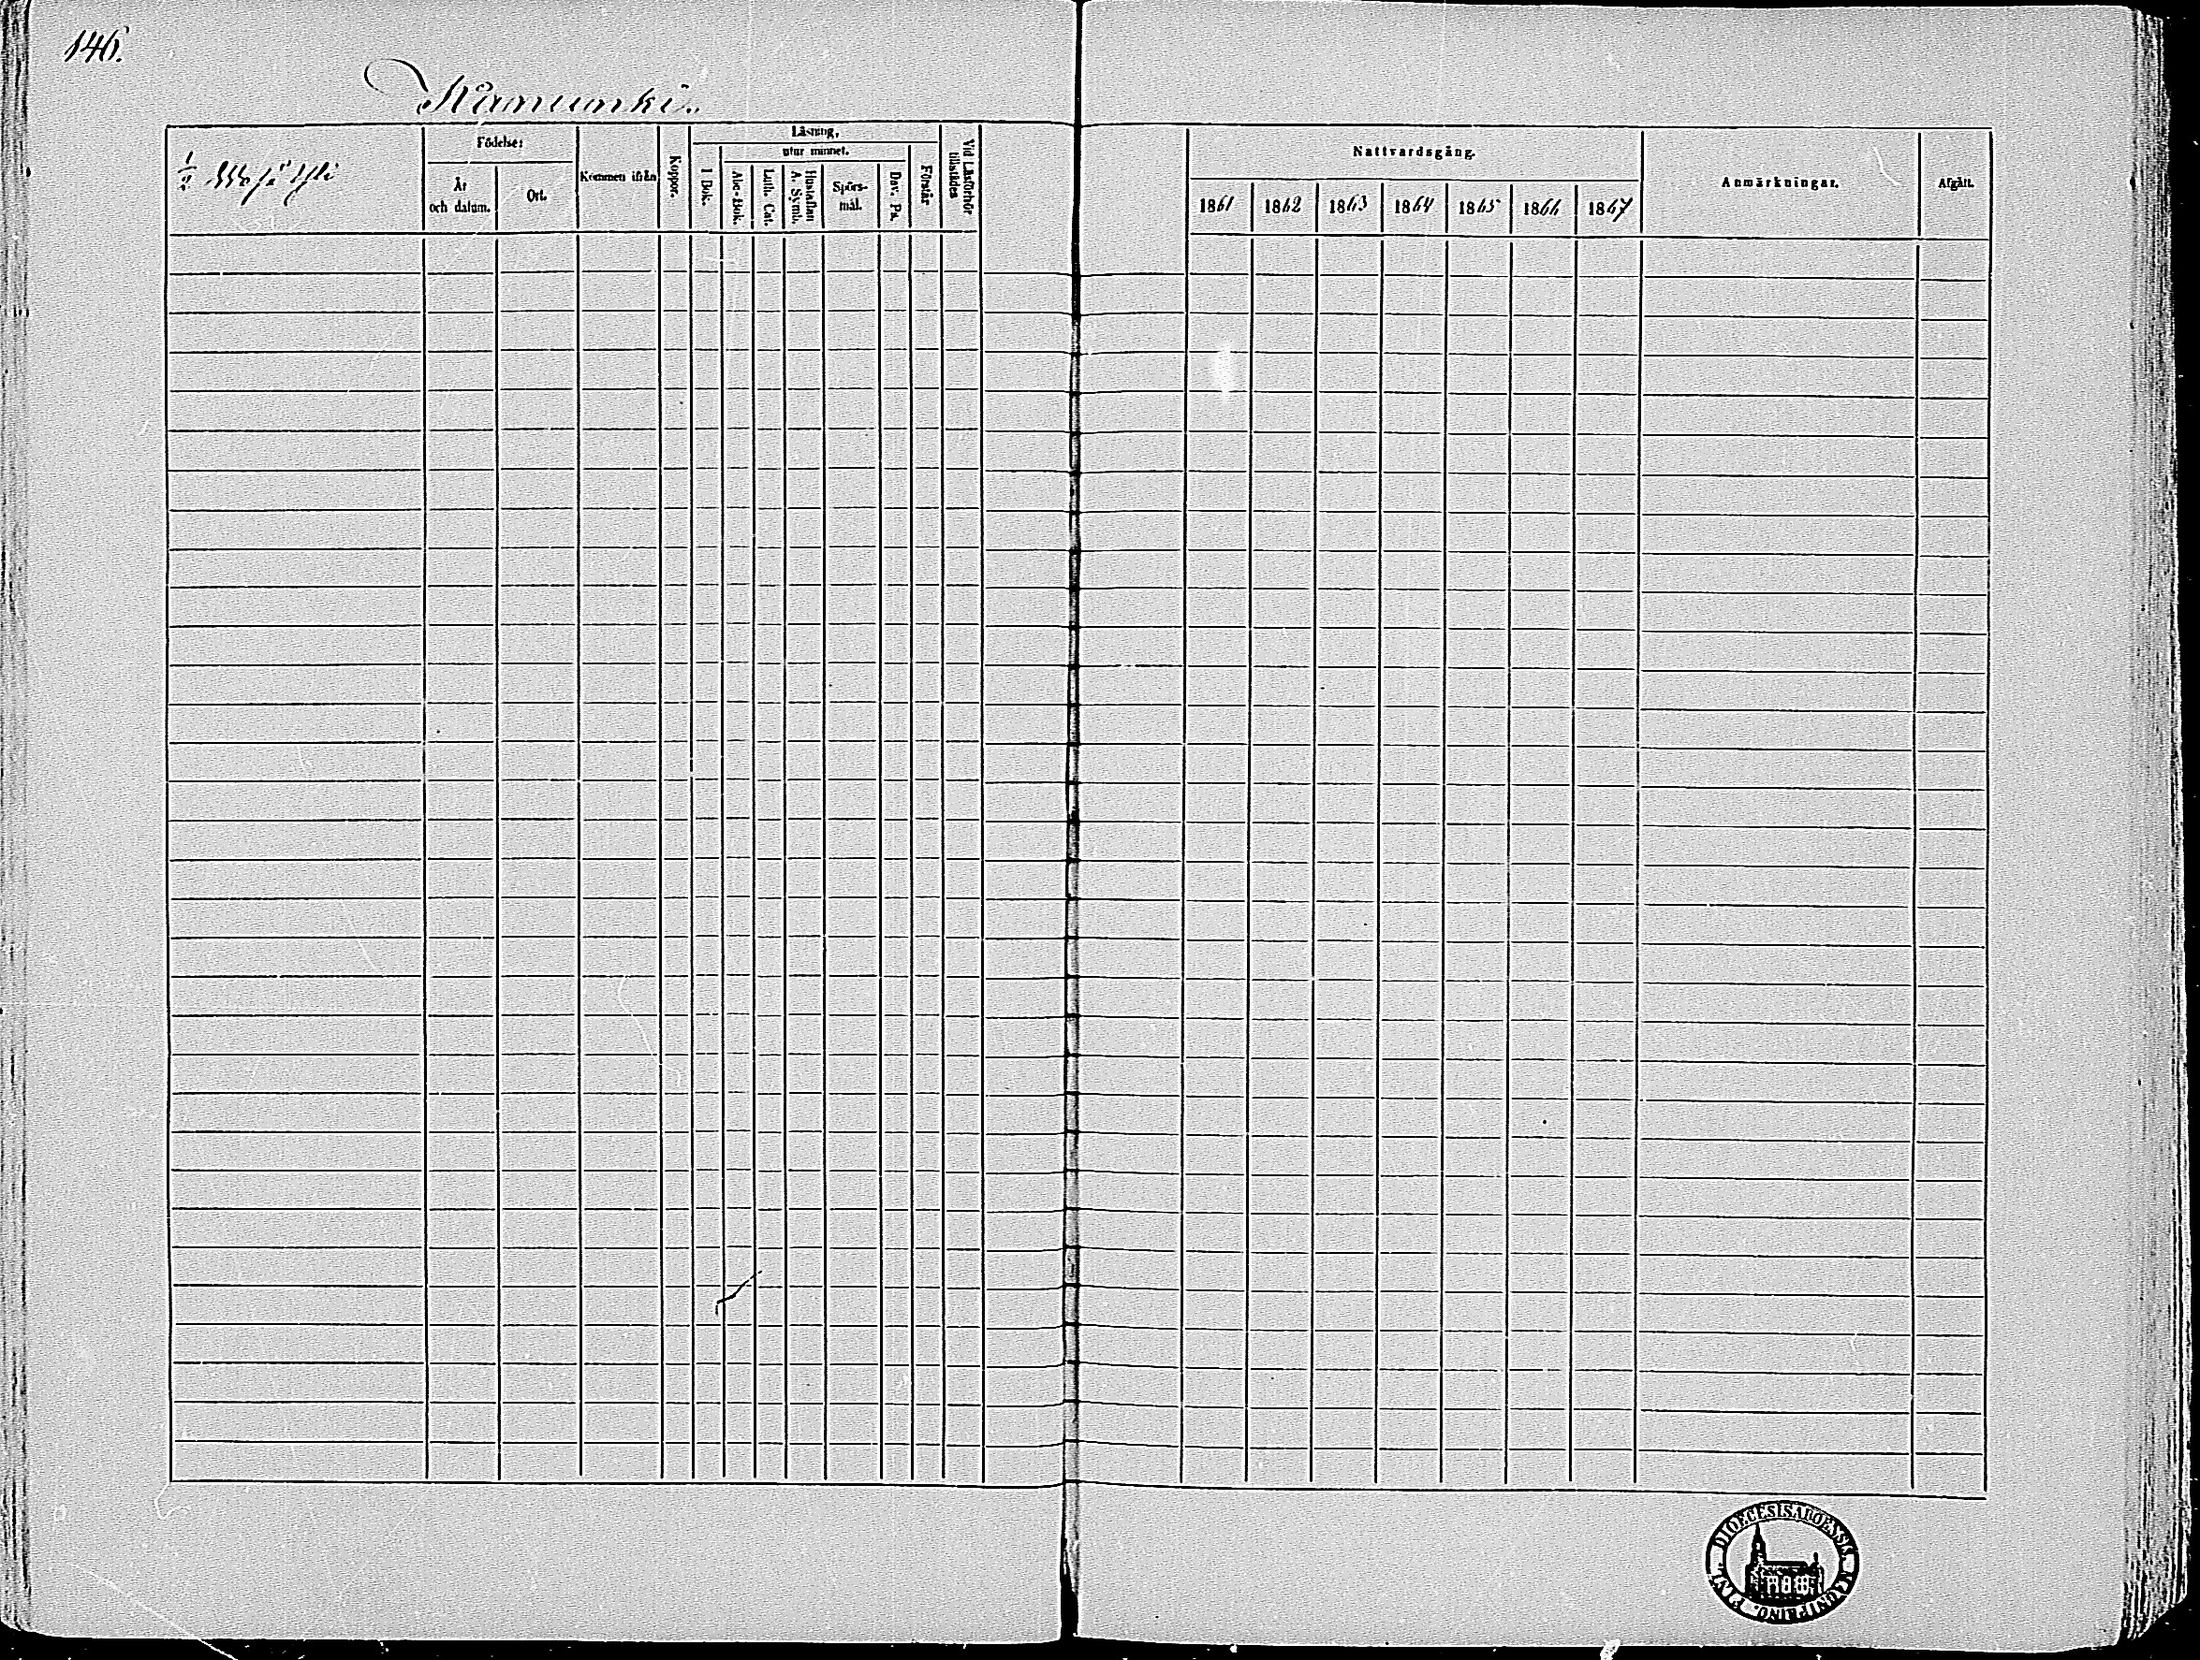 146.
Kamunki.
1/2
Födelse:
År
och datum.
Ort.
Kommen ifrån
Koppor.
Läsning,
utur minnet.
I Bok.
Abc-Bok.
Luth. Cat.
Hustaflan
A. Symb.
Spörs-
mål.
Dav. Ps.
Förstår
Vid Läsförhör
tillstädes
Nattvardsgång.
1861 1862 1863 1864 1865 1866 1867
Anmärkningar.
Afgått.